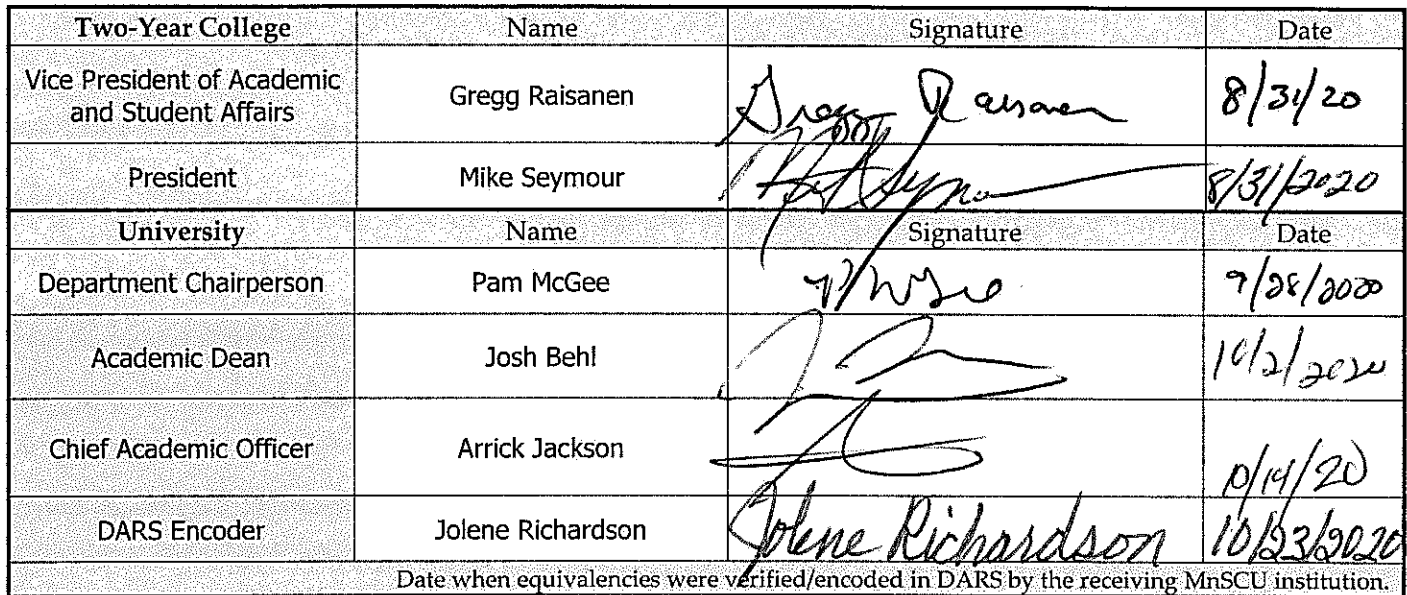 Two-Year College Name Signature Date
Vice President of Academic and Student Affairs Gregg Raisanen Gregg Raisanen 8/31/20
President Mike Seymour Seymour 8/31/2020
University Name Signature Date
Department Chairperson Pam McGee PMcGee 9/28/2020
Academic Dean Josh Behl 10/2/2020
Chief Academic Officer Arrick Jackson 10/14/20
DARS Encoder Jolene Richardson Jolene Richardson 10/23/2020
Date when equivalencies were verified/encoded in DARS by the receiving MnSCU institution.